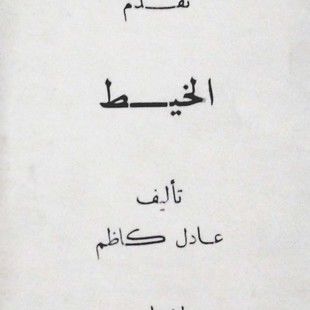 تقدم
الخيط
تأليف
عادل كاظم